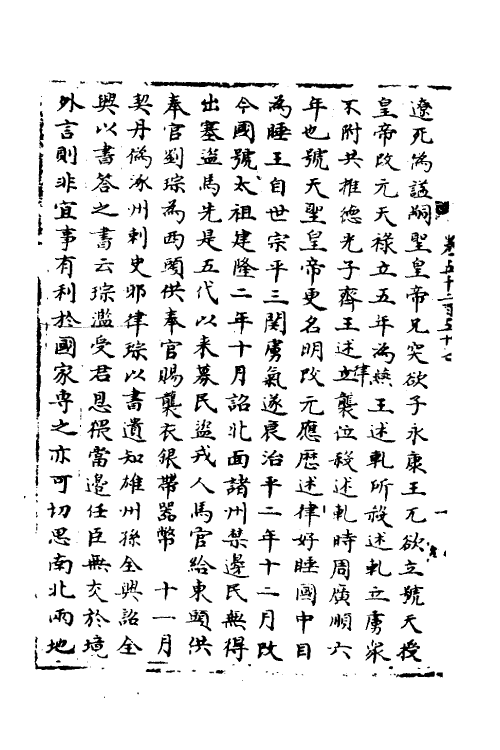 卷五千二百五十七
遼死偽謚嗣聖皇帝兄突欲子永康王兀欲立號天授
皇帝改元天祿立五年為燕王述軋所殺述軋立虜衆
不附共推德光子齊王述律襲位殺述軋時周廣順六
年也號天聖皇帝更名明改元應歷述律好睡國中目
為睡王自世宗平三関虜氣遂衰治平二年十二月改
今國號太祖建隆二年十月詔北面諸州禁邊民無得
出塞盜馬先是五代以来募民盜戎人馬官給東頭供
奉官劉琮為西頭供奉官賜襲衣銀帶器幣 十一月
契丹偽涿州刺史耶律琮以書遺知雄州孫全興詔全
興以書答之書云琮濫受君恩猥當邊任臣無交於境
外言則非宜事有利於國家専之亦可切思南北兩地